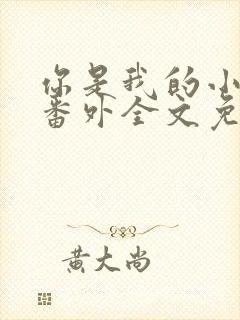 你是我的小
番外全文免
黄大尚